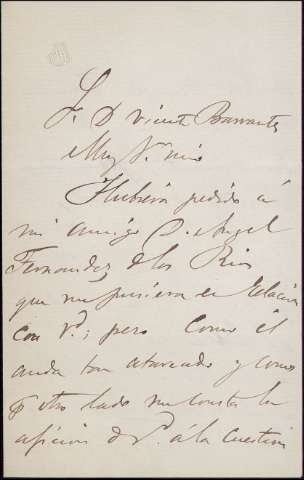 Sr. D Vicente Barrantes
Muy Sr. mio
Hubiera pedido á
mi amigo D. Angel
Fernandez de los Rios
que me pusiera en relacion
con V.; pero como él
anda tan atareado y como
por otro lado me consta la
aficion de V. á la cuestion